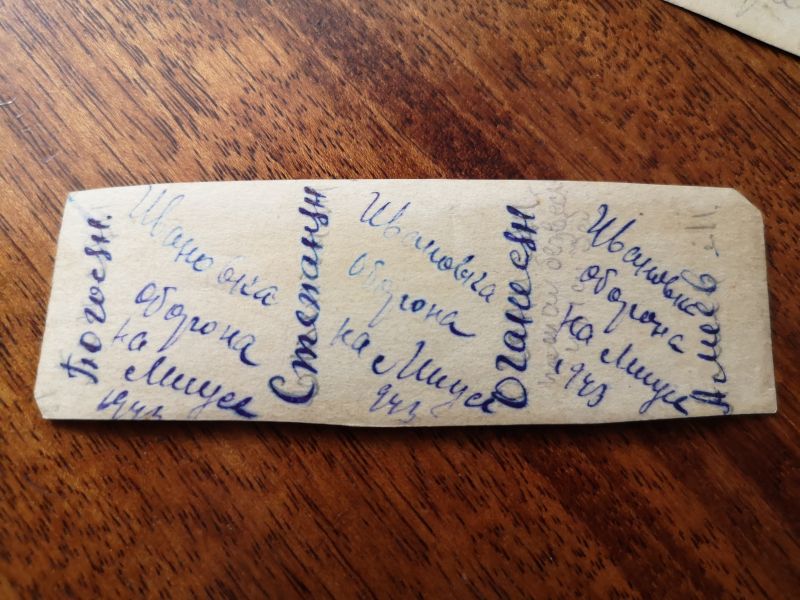 Богосян.
Ивановка
оборона
на Миусе
1943
Степанян
Ивановка
оборона
на Миусе
943
Оганесян
Ивановка
оборона
на Миусе
1943
Алиев